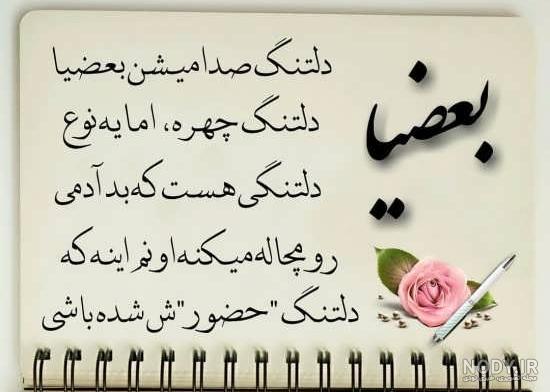 بعضیا
دلتنگ صدا میشن بعضیا
دلتنگ چهره، اما یه نوع
دلتنگی هست که بد آدمی
رو مچاله میکنه اونم اینه که
دلتنگ "حضور"ش شده باشی
NODY.IR